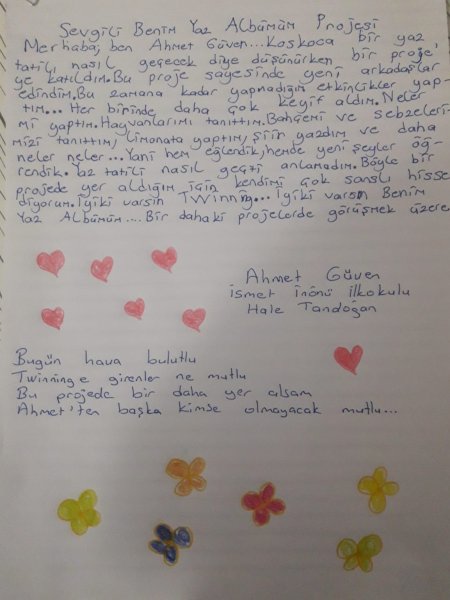 Sevgili Benim Yaz Albümüm Projesi
Merhaba; ben Ahmet Güven... Koskoca bir yaz
tatili nasıl geçecek diye düşünürken bir proje'
ye katıldım. Bu proje sayesinde yeni arkadaşlar
edindim. Bu zamana kadar yapmadığım etkinlikler yap-
tım... Her birinde daha çok keyif aldım. Neler
mi yaptım. Hayvanlarımı tanıttım. Bahçemi ve sebzeleri-
mizi tanıttım, limonata yaptım, şiir yazdım ve daha
neler neler... Yani hem eğlendik, hemde yeni şeyler öğ-
rendik. Yaz tatili nasıl geçti anlamadım. Böyle bir
projede yer aldığım için kendimi çok şanslı hisse
diyorum. İyiki varsın Twinning... İyiki varsın Benim
Yaz Albümüm.... Bir dahaki projelerde görüşmek üzere
Ahmet Güven
İsmet İnönü İlkokulu
Hale Tandoğan
Bugün hava bulutlu
Twinninge girenler ne mutlu
Bu projede bir daha yer alsam
Ahmet'ten başka kimse olmayacak mutlu...